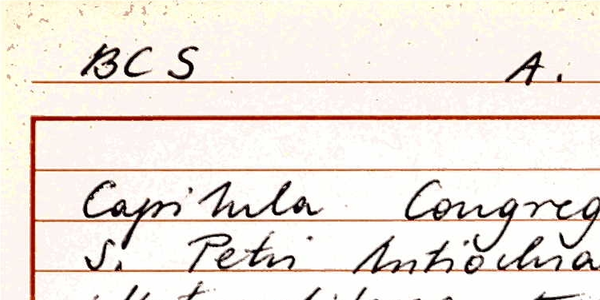 BCS A.
Capitula Congreg
S. Petri Antiochia